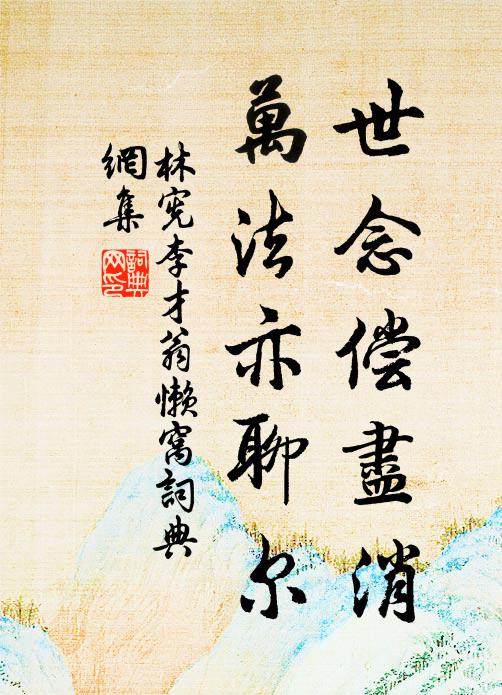 世念偿盡消
萬法亦聊尔
林宪李才翁懒窩詞典
網集
詞典网印